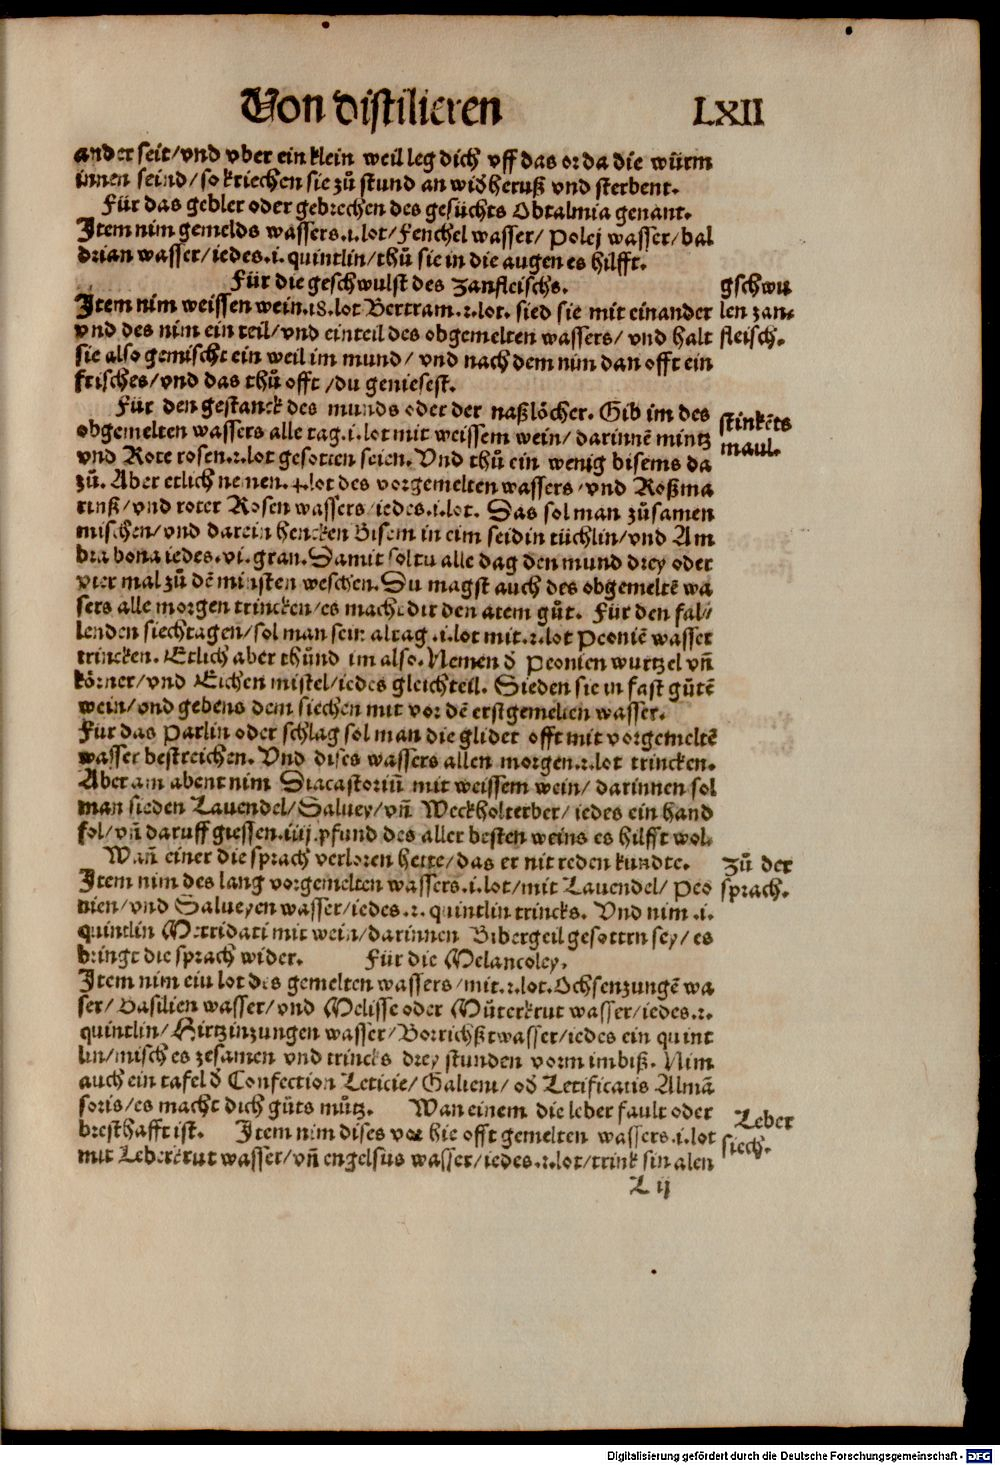 Von distilieren LXII
ander seit/vnd vber ein klein weil leg dich vff das or da die würm
innen seind/so kriechen sie zů stund an wid̄heruß vnd sterbent.
Für das gebler oder gebrechen des gesüchts Obtalmia genant.
Item nim gemelds wassers.i.lot/fenchel wasser/ Polej wasser/bal
drian wasser/iedes.i.quintlin/thů sie in die augen es hilfft.
Für die geschwulst des zanfleischs.
Item nim weissen wein.18.lot Bertram.2.lot. sied sie mit einander
vnd des nim ein teil/vnd ein teil des obgemelten wassers/ vnd halt
sie also gemischt ein weil im mund/ vnd nach dem nim dan offt ein
frisches/vnd das thů offt/du geniesest.
gschwu
len zan-
fleisch.
Für den gestanck des munds oder der naßlöcher. Gib im des
obgemelten wassers alle tag.i.lot mit weissem wein/ darinnē mintz
vnd Rote rosen.2.lot gesotten seien. Vnd thů ein wenig bisems da
zů. Aber etlich nemen.4.lot des vorgemelten wassers/vnd Roßma
rinß/vnd roter Rosen wassers/iedes.i.lot. Das sol man zůsamen
mischen/vnd darein hencken Bisem in eim seidin tüchlin/vnd Am
bra bona iedes.vi.gran. Damit soltu alle dag den mund drey oder
vier mal zů dē minsten weschen. Du magst auch des obgemeltē wa
sers alle morgen trincken/es macht dir den atem gůt. Für den fal/
lenden siechtagen/sol man sein altag.i.lot mit.2.lot Peoniē wasser
trincken. Etlich aber thůnd im also. Nemen d̄ Peonien wurtzel vn̄
körner/vnd Eichen mistel/iedes gleichteil. Sieden sie in fast gůtē
wein/vnd gebens dem siechen mit vor dē erstgemelten wasser.
stinkēts
maul.
Für das Parlin oder schlag sol man die glider offt mit vorgemeltē
wasser bestreichen. Vnd dises wassers allen morgen.2.lot trincken.
Aber am abent nim Diacastoriū mit weissem wein/ darinnen sol
man sieden Lauendel/Saluey/vn̄ Weckholterber/iedes ein hand
fol/vn̄ daruff giessen.iiij.pfund des aller besten weins es hilfft wol.
Wan̄ einer die sprach verloren hette/das er nit reden kundte.
Item nim des lang vorgemelten wassers.i.lot/mit Lauendel/ Peo
nien/vnd Salueyen wasser/iedes.2.quintlin trincks. Vnd nim.i.
quintlin Metridati mit wein/darinnen Bibergeil gesottrn sey/es
bringt die sprach wider. Für die Melancoley.
zů der
sprach.
Item nim ein lot des gemelten wassers/mit.2.lot.Ochsenzungē wa
ser/Basilien wasser/vnd Melisse oder Můterkrut wasser/iedes.2.
quintlin/Hirtzinzungen wasser/Borrichßtwasser/iedes ein quint
lin/misch es zesamen vnd trincks drey stunden vorm imbiß. Nim
auch ein tafel d̄ Confection Leticie/Galieni/od̄ Letificatis Almā
soris/es macht dich gůts můtz. Wan einem die leber fault oder
bresthafft ist. Item nim dises vor hie offt gemelten wassers.i.lot
mit Leberkrut wasser/vn̄ engelsüs wasser/iedes.2.lot/trink sin alen
Leber
siech.
L ij
Digitalisierung gefördert durch die Deutsche Forschungsgemeinschaft - DFG